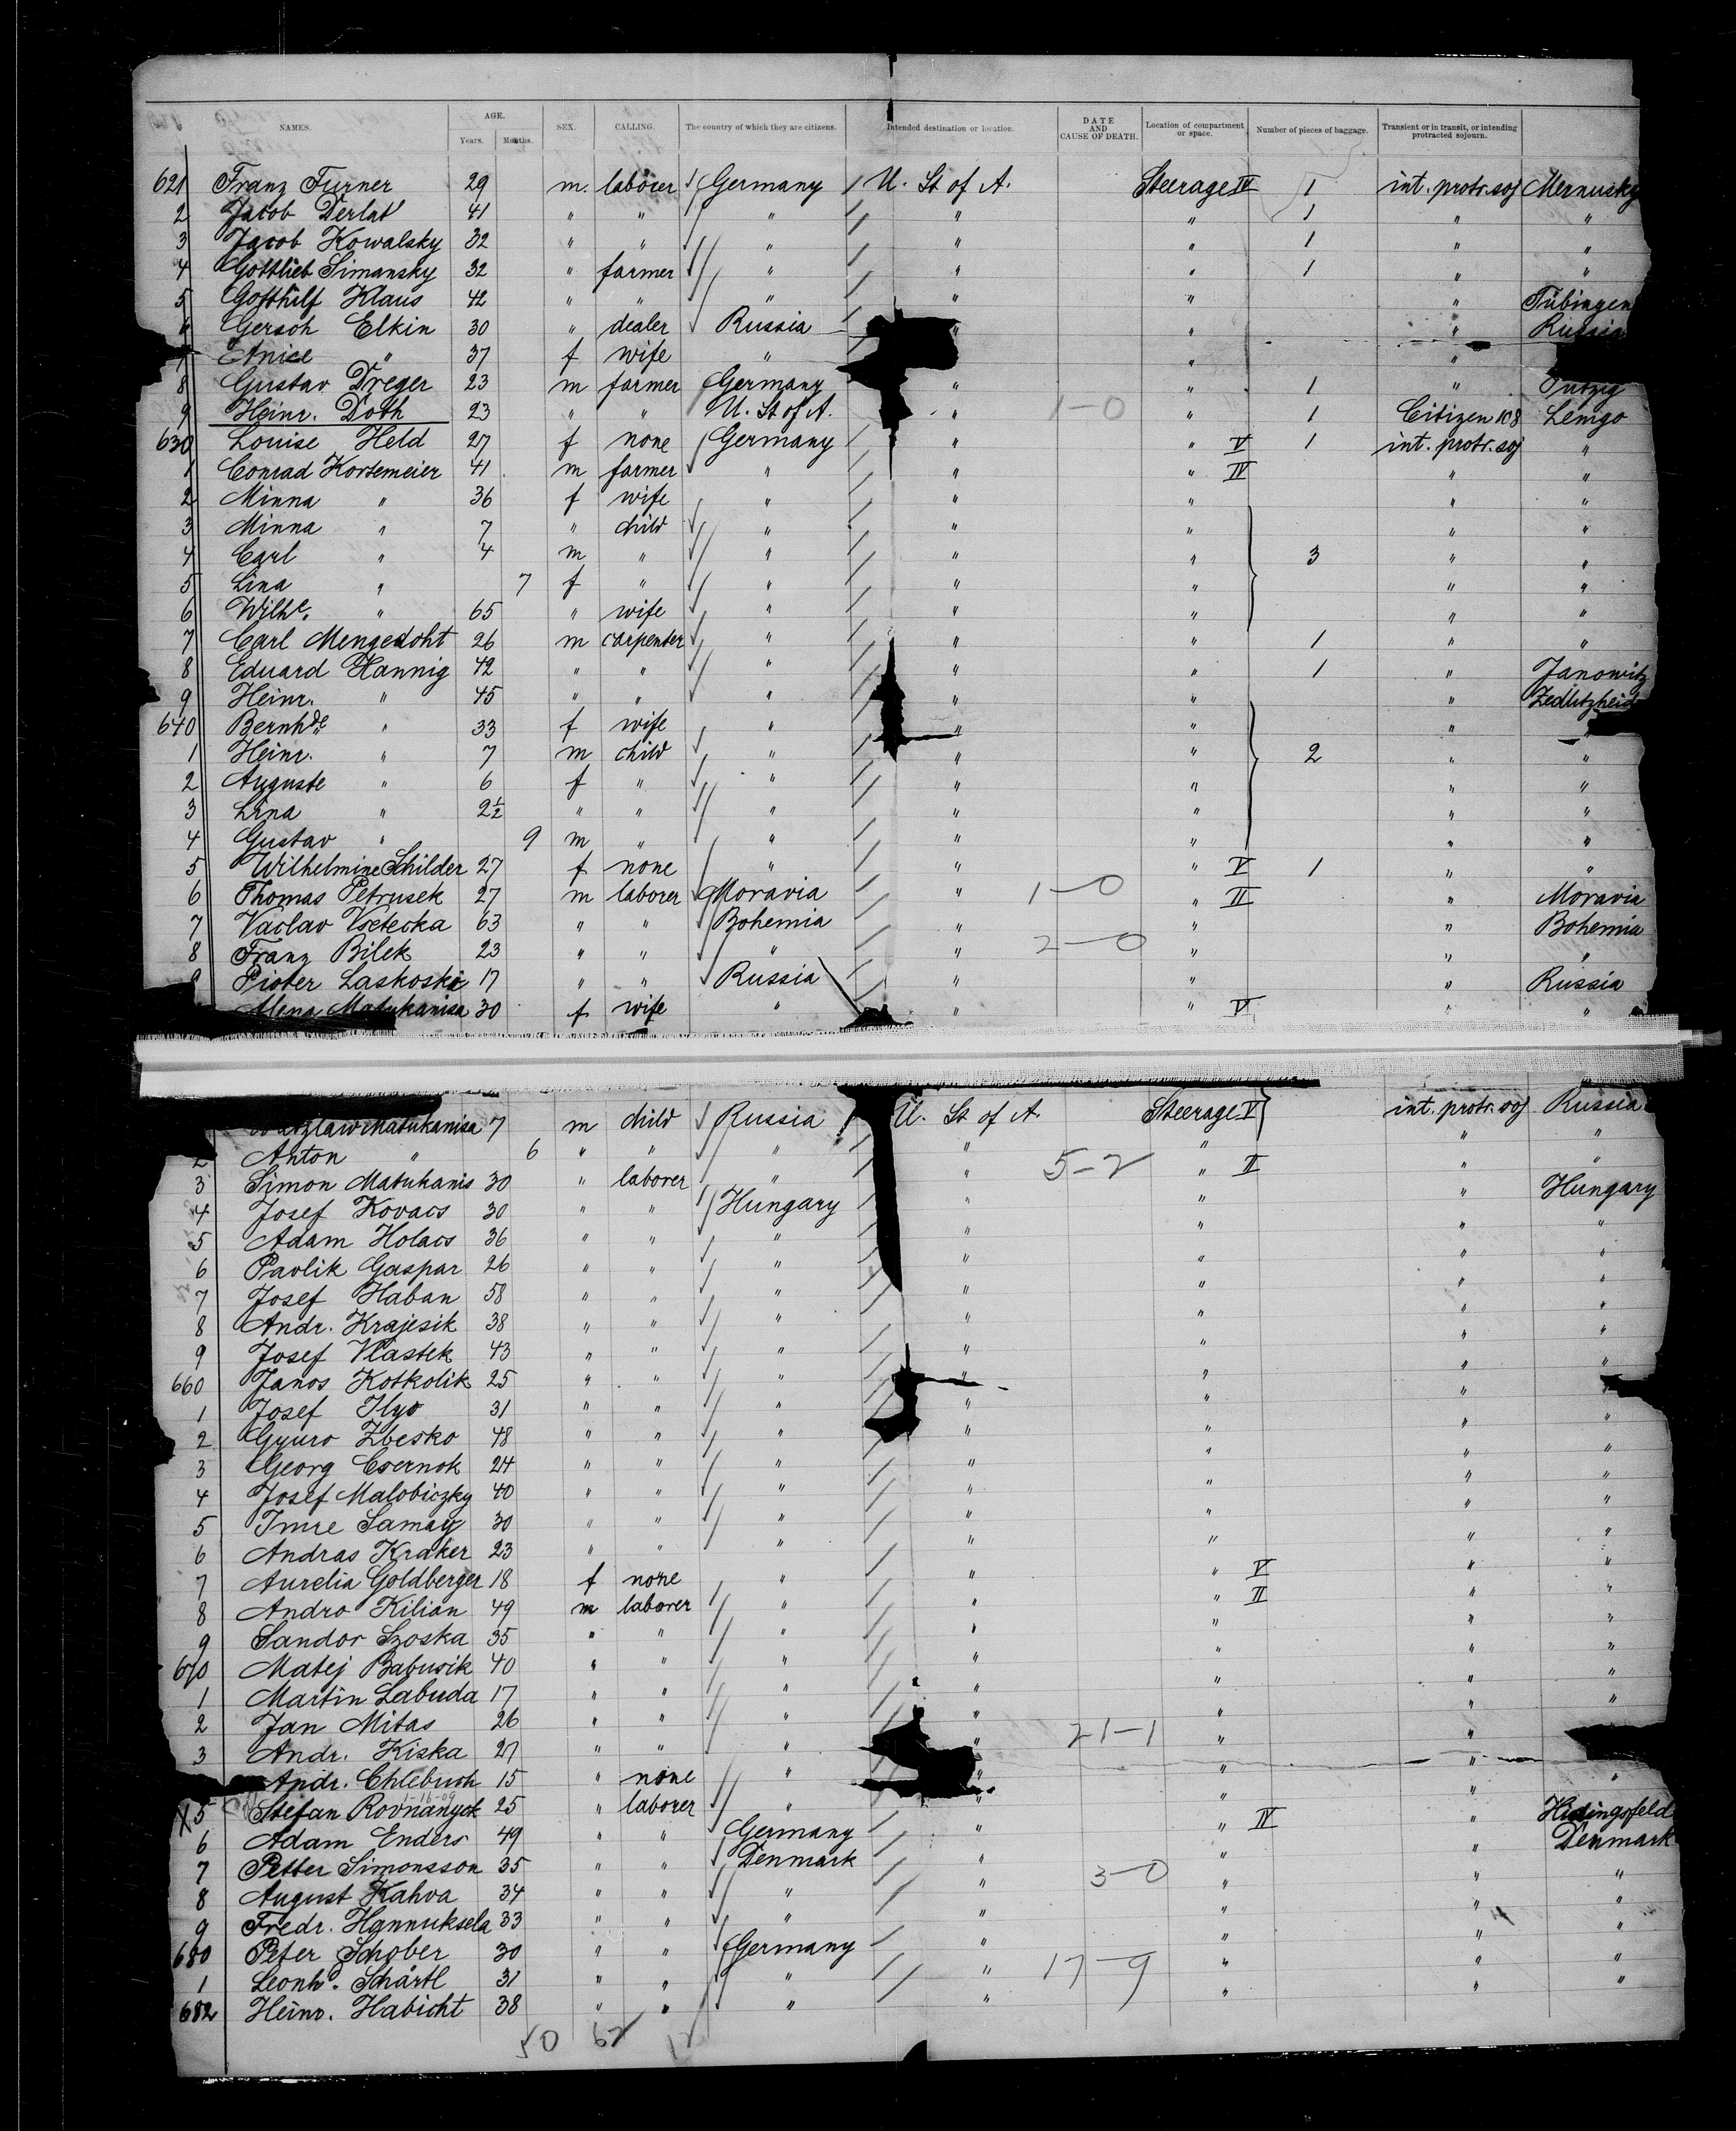 NAMES. AGE. Years. Months. SEX. CALLING. The country of which they are citizens. Intended destination or location. DATE AND CAUSE OF DEATH. Location of compartment or space. Number of pieces of baggage. Transient or in transit, or intending protracted sojourn.
621 Franz Turner 29 m. laborer Germany U. St of A. Steerage IV 1 int. protr. soj
2 Jacob Derlat 41 " " " " " 1 " "
3 Jacob Kowalsky 32 " " " " " 1 " "
4 Gottlieb Simansky 32 " farmer " " " 1 " "
5 Gotthilf Klaus 42 " " " " " " Tübingen
6 Gersoh Elkin 30 " dealer Russia " " " Russia
7 Anice " 37 f wife " " "
8 Gustav Dreger 23 m farmer Germany " " 1 "
9 Heinr. Doth 23 " " U. St of A. " 1-0 " 1 Citizen 108 Lemgo
630 Louise Held 27 f none Germany " " V 1 int. protr. soj "
1 Conrad Kortemeier 41 m farmer " " " IV " "
2 Minna " 36 f wife " " " " "
3 Minna " 7 " child " " " " "
4 Carl " 4 m " " " " 3 " "
5 Lina " 7 f " " " " " "
6 Wilhe. " 65 " wife " " " " "
7 Carl Mengedoht 26 m carpenter " " " 1 " "
8 Eduard Hannig 42 " " " " " 1 " Janowitz
9 Heinr. " 45 " " " " " " Zedlitzheid
640 Bernhde " 33 f wife " " " "
1 Heinr. " 7 m child " " " 2 " "
2 Auguste " 6 f " " " " " "
3 Lina " 2½ " " " " " " "
4 Gustav " 9 m " " " " " "
5 Wilhelmine Schilder 27 f none " " " V 1 " "
6 Thomas Petrusek 27 m laborer Moravia " 1-0 " II " Moravia
7 Vaclav Vsetecka 63 " " Bohemia " " " Bohemia
8 Franz Bilek 23 " " " " 2-0 " " "
9 Pioter Laskoski 17 " " Russia " " " Russia
Mena Matukanisa 30 f wife " " " V " "
Matukanisa 7 m child Russia U. St of A. Steerage V int. protr. soj Russia
2 Anton " 6 " " " " " " "
3 Simon Matukanis 30 " laborer " " 5-2 " II " "
4 Josef Kovacs 30 " " Hungary " " " Hungary
5 Adam Holacs 36 " " " " " " "
6 Pavlik Gaspar 26 " " " " " " "
7 Josef Haban 58 " " " " " " "
8 Andr. Krajesik 38 " " " " " " "
9 Josef Vlastek 43 " " " " " " "
660 Janos Kotkolik 25 " " " " " " "
1 Josef Ilyo 31 " " " " " " "
2 Gyuro Zbesko 48 " " " " " " "
3 Georg Csernok 24 " " " " " " "
4 Josef Malobiczky 40 " " " " " " "
5 Imre Samay 30 " " " " " " "
6 Andras Kraker 23 " " " " " " "
7 Aurelia Goldberger 18 f none " " " V " "
8 Andro Kilian 49 m laborer " " " II " "
9 Sandor Szoska 35 " " " " " " "
670 Matej Babusik 40 " " " " " " "
1 Martin Labuda 17 " " " " " " "
2 Jan Mitas 26 " " " " " " "
3 Andr. Kiska 27 " " " " 21-1 " "
Andr. Chlebuch 15 " none " " " " "
X5 Stefan Rovnanyck 25 " laborer " " " "
6 Adam Enders 49 " " Germany " " IV " Hidingsfeld
7 Petter Simonsson 35 " " Denmark " " " Denmark
8 August Kahva 34 " " " " 3-0 " " "
9 Fredr. Hannuksela 33 " " " " " " "
680 Peter Schober 30 " " Germany " " " "
1 Leonhd. Schärtl 31 " " " " 17-9 " " "
682 Heinr. Habicht 38 " " " " " " "
50 62 12